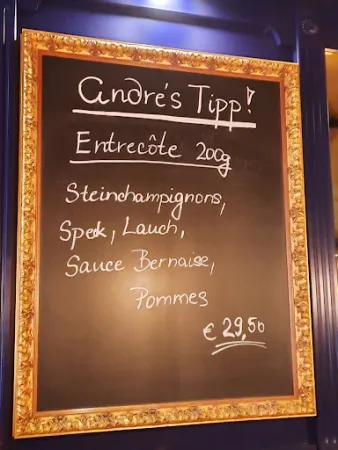 André's Tipp!
Entrecôte 200g
Steinchampignons,
Speck, Lauch,
Sauce Bernaise,
Pommes
€ 29,50